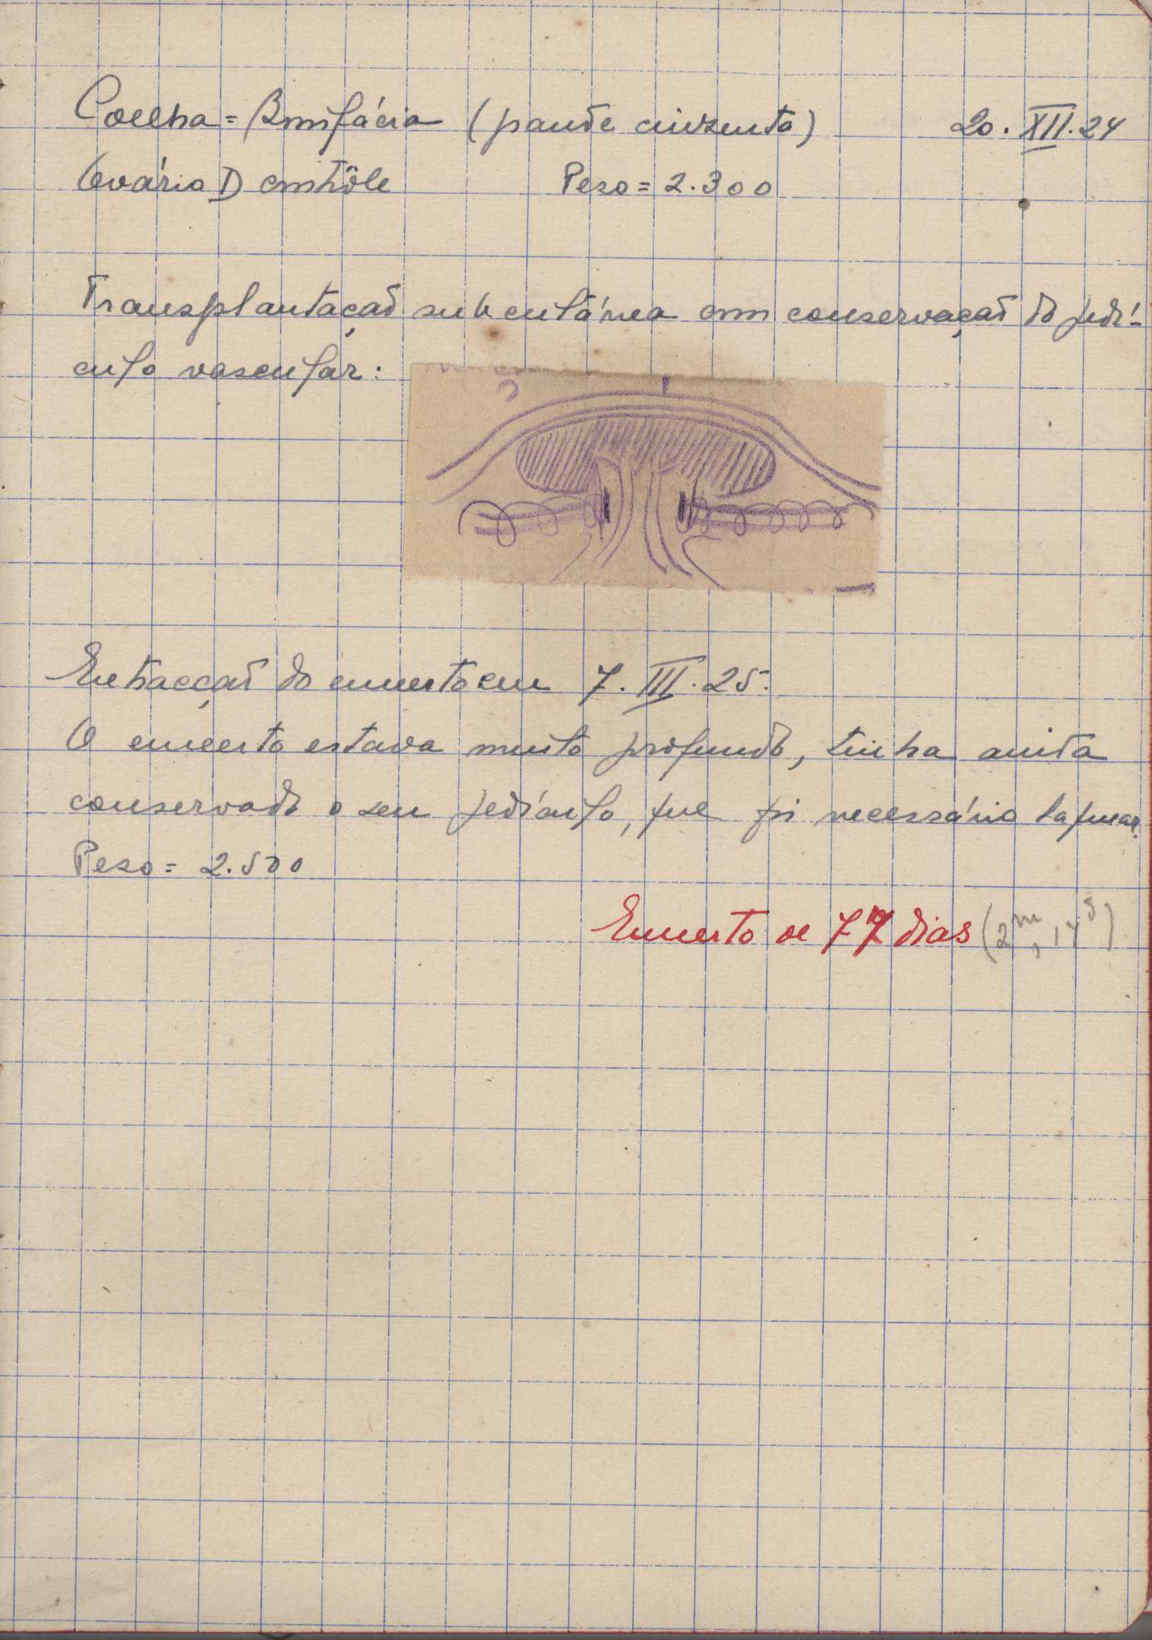 Coelha = Bonifácia (grande cinzenta) 20.XII.24
Ovário D contrôle Peso = 2.300
Transplantação subcutânea com conservação do pedí-
culo vascular:
Extracção do enxerto em 7.III.25.
O enxerto estava muito profundo, tinha ainda
conservado o seu pedículo, que foi necessário laquear.
Peso = 2.500
Enxerto de 77 dias (2m, 17d)